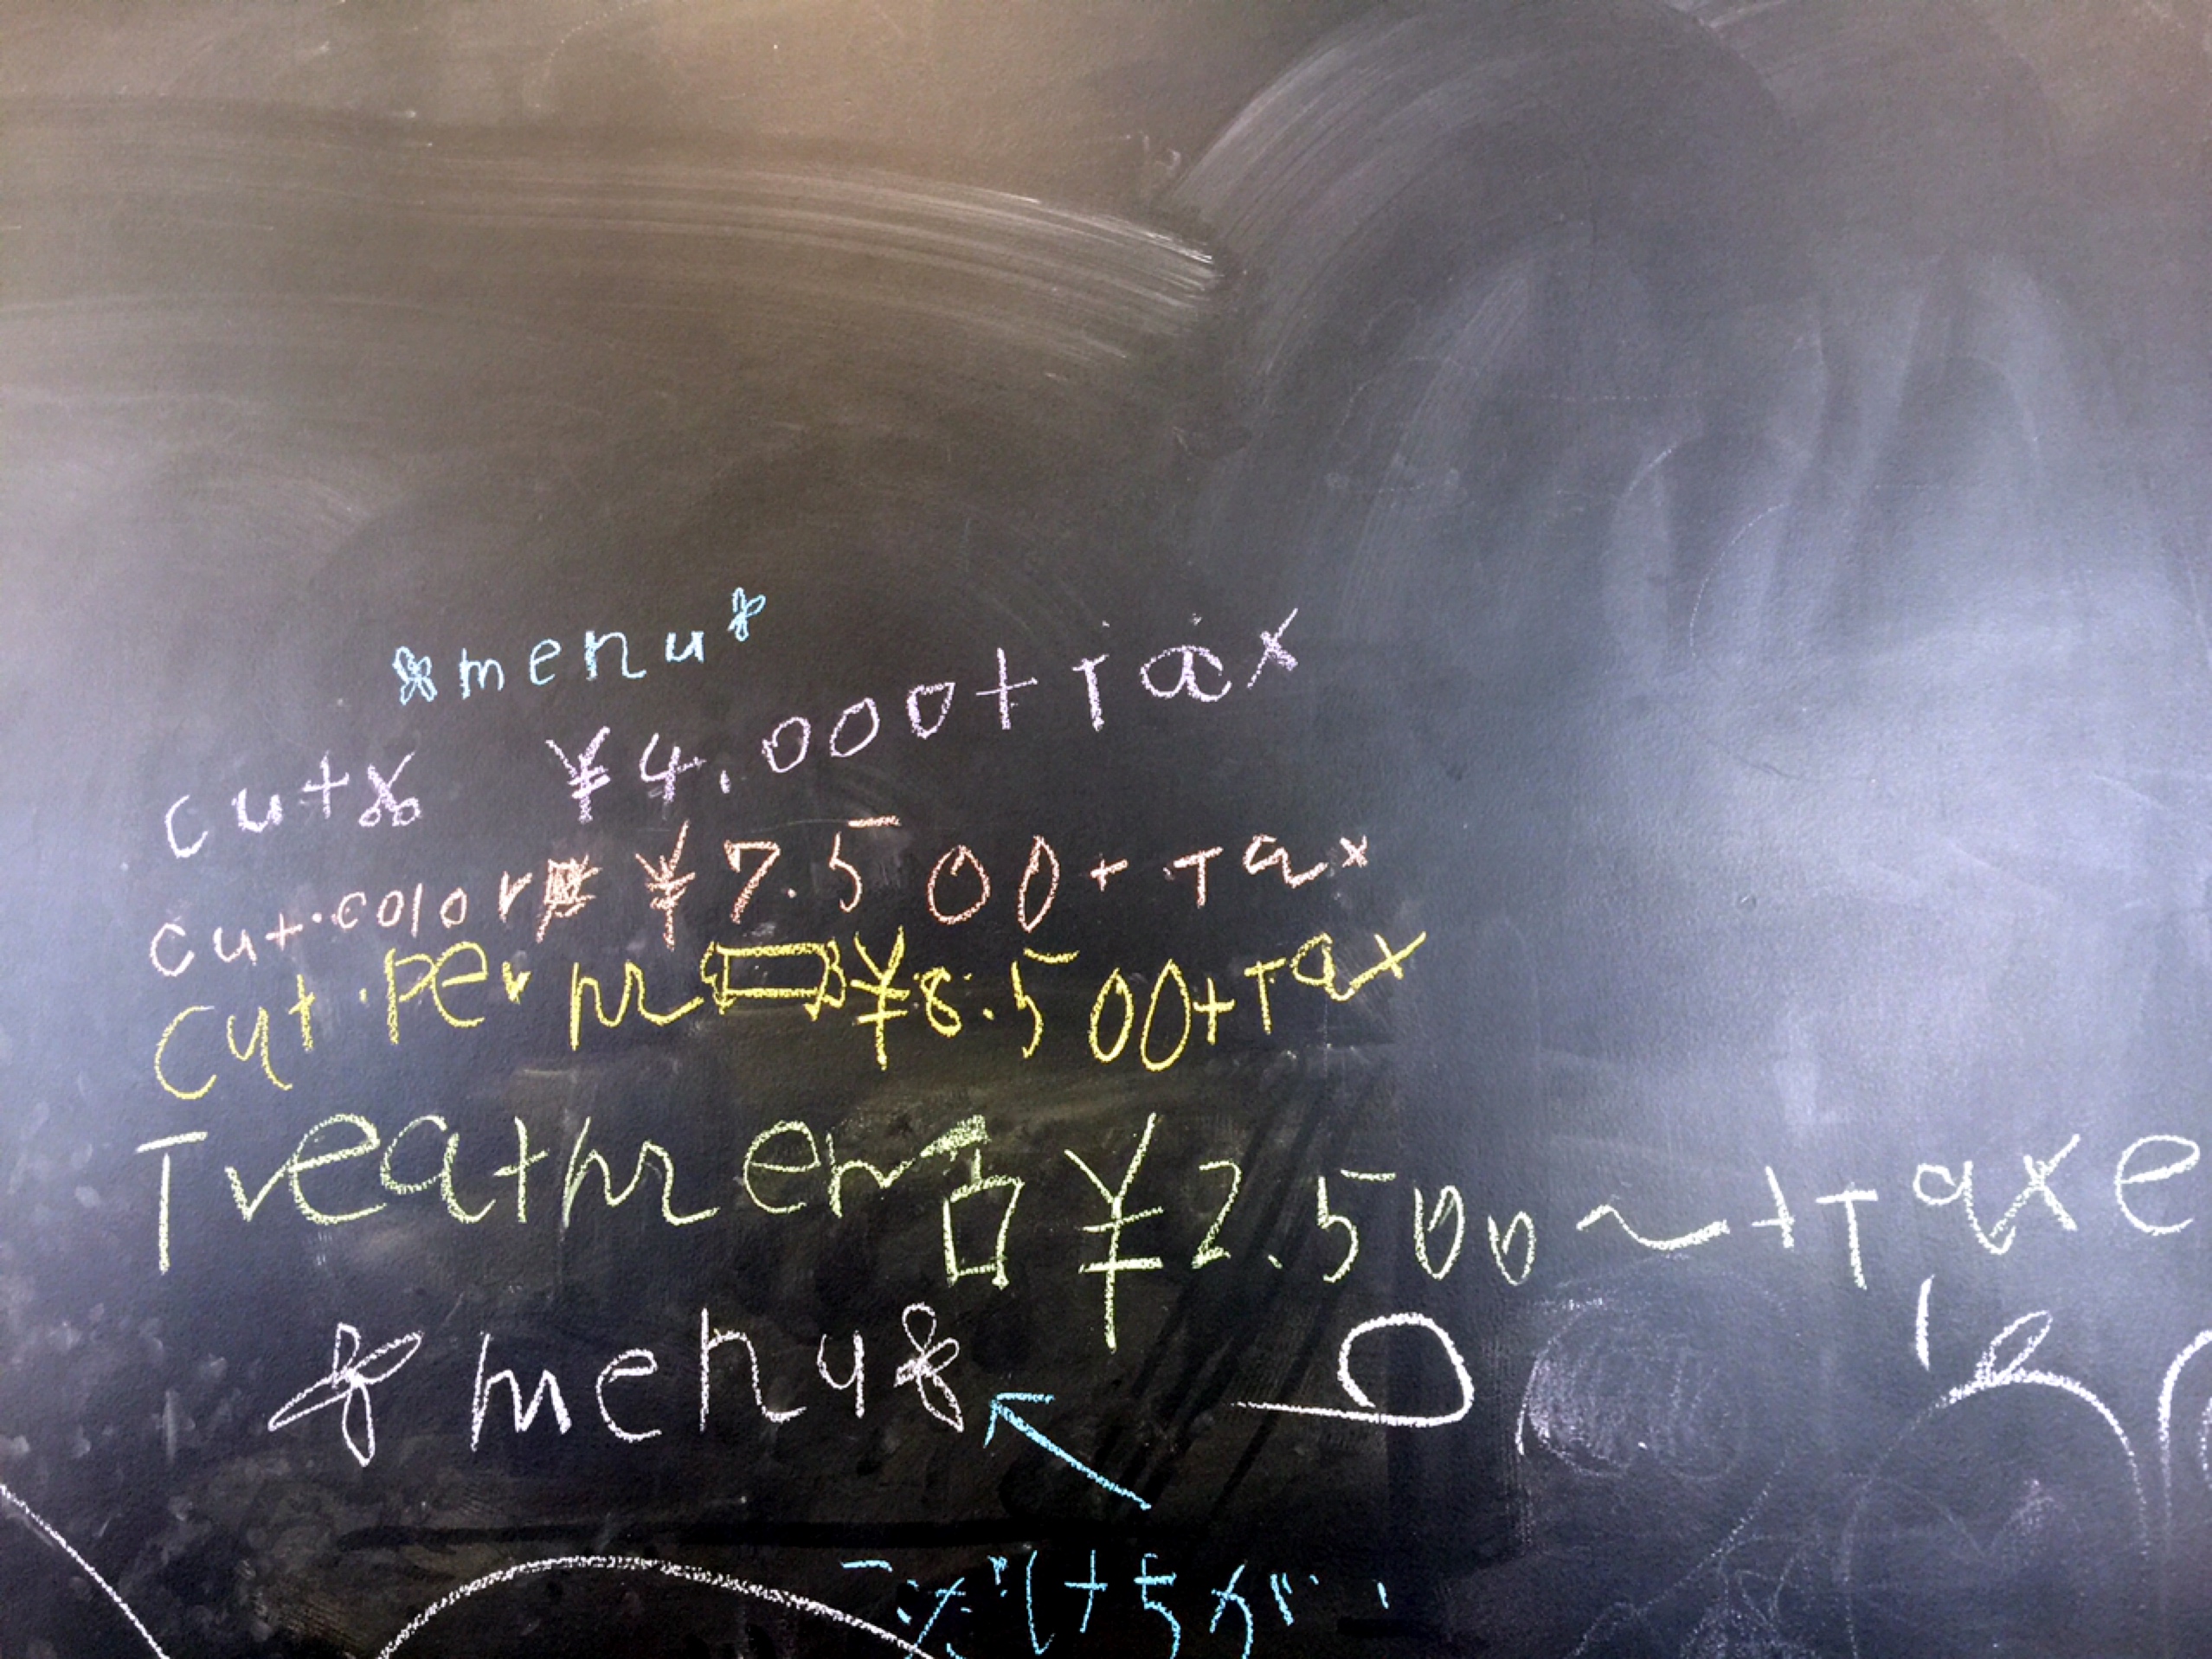 menu
cut ¥4.000+Tax
cut・color ¥7.500+Tax
cut・perm ¥8.500+Tax
Treatment ¥2.500～+Taxe
menu
だけちが